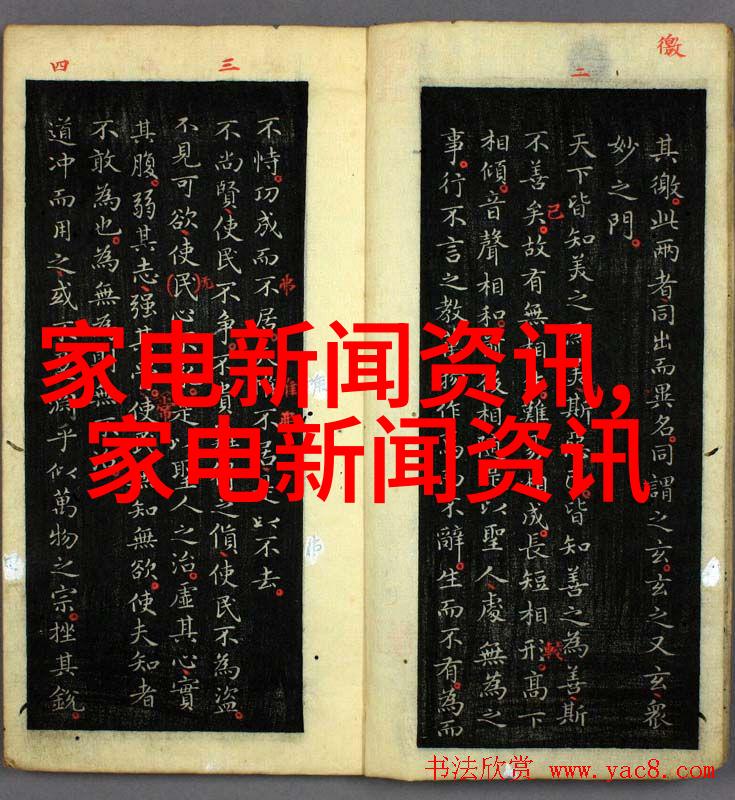 家电新闻资讯,
家电新闻资讯
徼
二
其徼。此两者、同出而異名。同謂之玄。玄之又玄、衆
妙之門。
天下皆知美之 斯 皆知善之為善斯
不善矣。故有無相 難 相成。長短相形。高下
相傾。音聲相和。 後相 以聖人、處無為之
事、行不言之教。 物作 不辭。生而不有。為而
三
四
不恃。功成而不居。 不居 以不去。
不尚賢、使民不争。不貴 之貨、使民不為盜。
不見可欲、使(民)心 是以聖人之治。虛其心、實
其腹。弱其志、强其 使 無知無欲。使夫知者
不敢為也。為無為 無
道冲而用之、或 淵乎似萬物之宗。挫其銳。
书法欣赏 www.yac8.com